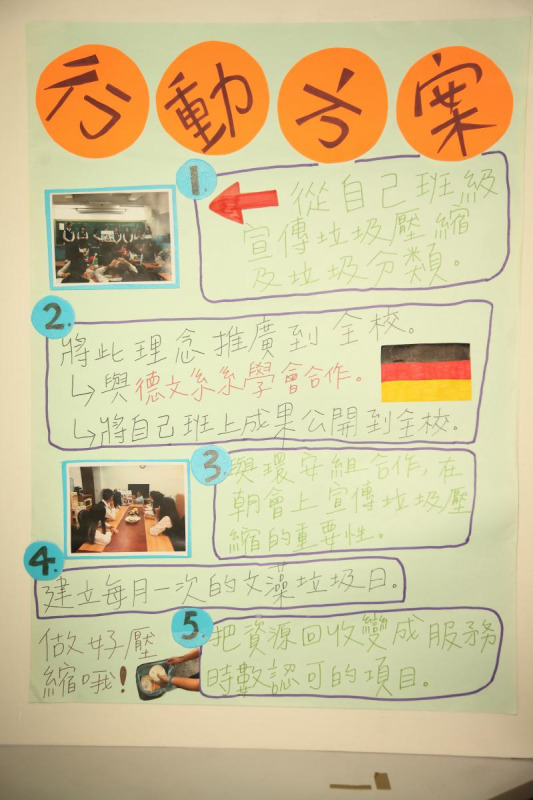 行動方案
1.
從自己班級
宣傳垃圾壓縮
及垃圾分類。
2.
將此理念推廣到全校。
↳與德文系系學會合作。
↳將自己班上成果公開到全校。
3.
與環安組合作,在
朝會上宣傳垃圾壓
縮的重要性。
4.
建立每月一次的文藻垃圾日。
做好壓
縮哦!
5.
把資源回收變成服務
時數認可的項目。